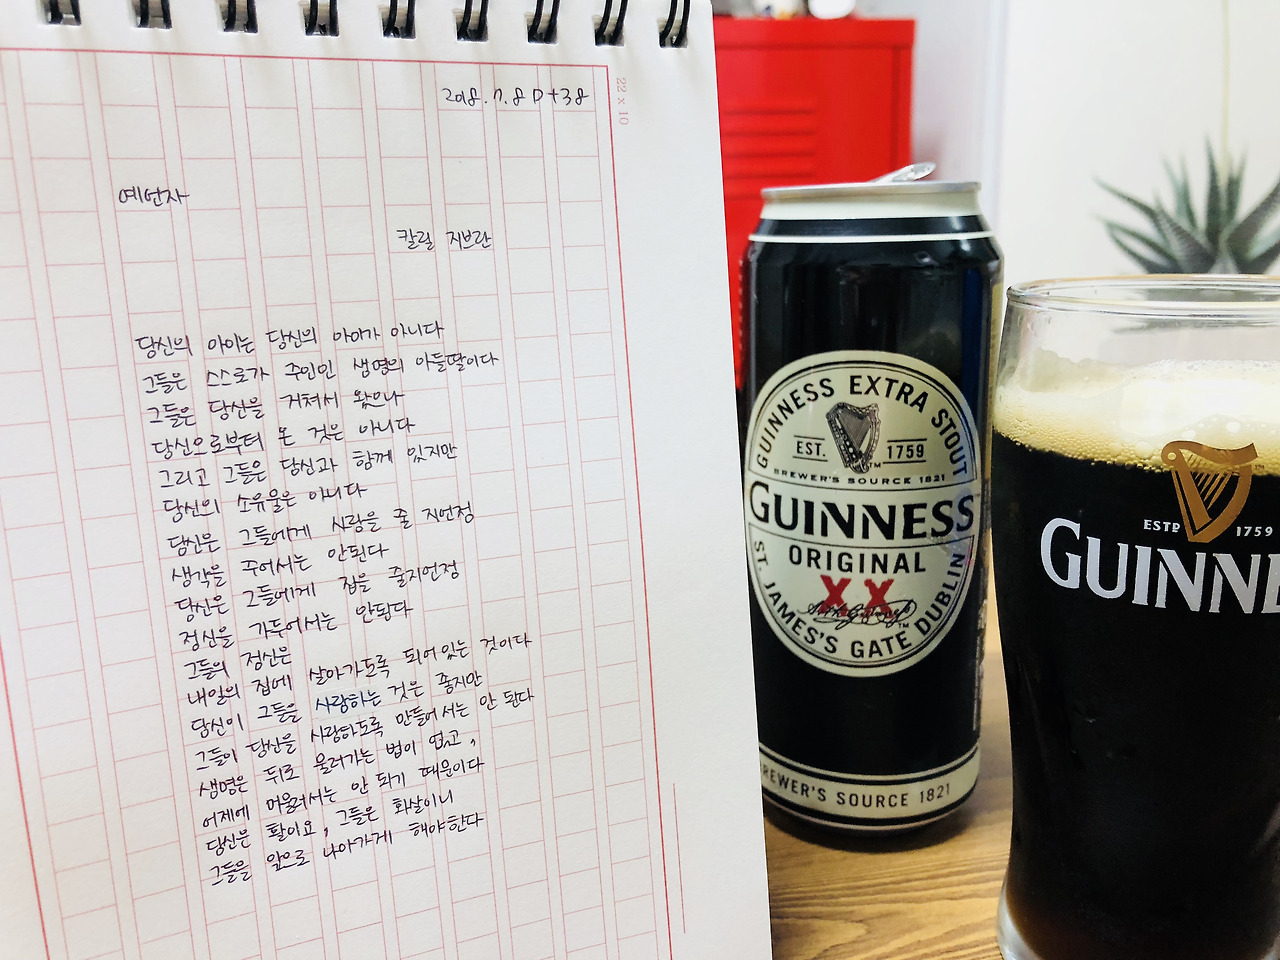 2018. 7. 8 D+38
22 x 10
예언자
칼릴 지브란
당신의 아이는 당신의 아이가 아니다
그들은 스스로가 주인인 생명의 아들딸이다
그들은 당신을 거쳐서 왔으나
당신으로부터 온 것은 아니다
그리고 그들은 당신과 함께 있지만
당신의 소유물은 아니다
당신은 그들에게 사랑을 줄 지언정
생각을 주어서는 안된다
당신은 그들에게 집을 줄지언정
정신을 가두어서는 안된다
그들의 정신은
내일의 집에 살아가도록 되어있는 것이다
당신이 그들을 사랑하는 것은 좋지만
그들이 당신을 사랑하도록 만들어서는 안 된다
생명은 뒤로 물러가는 법이 없고,
어제에 머물러서는 안 되기 때문이다
당신은 활이요, 그들은 화살이니
그들을 앞으로 나아가게 해야한다
GUINNESS EXTRA STOUT
EST. 1759
BREWER'S SOURCE 1821
GUINNESS
ORIGINAL
XX
ST. JAMES'S GATE DUBLIN
BREWER'S SOURCE 1821
ESTD 1759
GUINNE